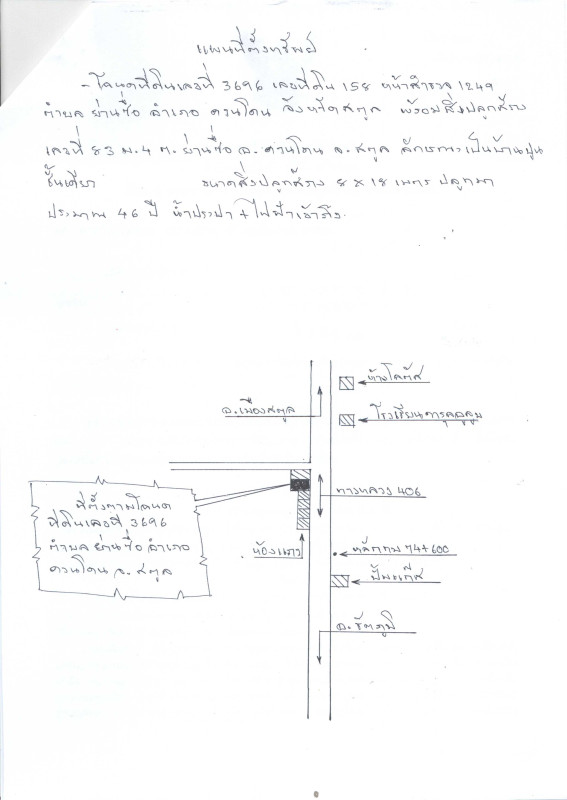 แผนที่ตั้งทรัพย์
- โฉนดที่ดินเลขที่ 3696 เลขที่ดิน 158 หน้าสำรวจ 1249
ตำบล ย่านซื่อ อำเภอ ควนโดน จังหวัดสตูล พร้อมสิ่งปลูกสร้าง
เลขที่ 83 ม.4 ต.ย่านซื่อ อ.ควนโดน จ.สตูล ลักษณะเป็นบ้านปูน
ชั้นเดียว ขนาดสิ่งปลูกสร้าง 8 x 18 เมตร ปลูกมา
ประมาณ 46 ปี น้ำประปา + ไฟฟ้าเข้าถึง.
ห้างโลตัส
อ.เมืองสตูล
โรงเรียนดารุลอูลูม
ที่ตั้งตามโฉนด
ที่ดินเลขที่ 3696
ตำบล ย่านซื่อ อำเภอ
ควนโดน จ.สตูล
ทางหลวง 406
ห้องแถว
หลักกม 74+600
ปั๊มแก๊ส
อ.รัตภูมิ